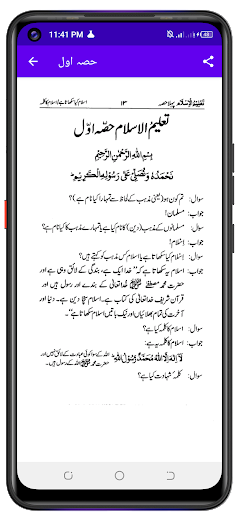 11:41 PM
48
حصہ اول
تعلیم الاسلام پہلا حصہ ۱۳ اسلام کیا سکھاتا ہے/اسلام کا کلمہ
تعلیم الاسلام حصّہ اوّل
بِسْمِ اللهِ الرَّحْمٰنِ الرَّحِيْمِ
نَحْمَدُهٗ وَنُصَلِّيْ عَلٰى رَسُوْلِهِ الْكَرِيْمِ
سوال: تم کون ہو (یعنی مذہب کے لحاظ سے تمہارا کیا نام ہے)؟
جواب: مسلمان!
سوال: مسلمانوں کے مذہب (دین) کا نام کیا ہے یا تمہارے مذہب کا نام کیا ہے؟
جواب: اسلام!
سوال: اسلام کیا سکھاتا ہے یا اسلام کس مذہب کو کہتے ہیں؟
جواب: اسلام یہ سکھاتا ہے کہ "خدا ایک ہے، بندگی کے لائق وہی ہے اور
حضرت محمد مصطفےٰ ﷺ خدا تعالیٰ کے بندے اور رسول ہیں اور
قرآن شریف خدا تعالیٰ کی کتاب ہے۔ اسلام سچا دین ہے۔ دنیا اور
آخرت کی تمام بھلائیاں اور نیک باتیں اسلام سکھاتا ہے"۔
سوال: اسلام کا کلمہ کیا ہے؟
جواب: اسلام کا کلمہ یہ ہے:
لَا اِلٰهَ اِلَّا اللهُ مُحَمَّدٌ رَّسُوْلُ اللهِ اللہ کے سوا کوئی عبادت کے لائق نہیں اور حضرت محمد ﷺ اللہ کے رسول ہیں۔
سوال: کلمۂ شہادت کیا ہے؟